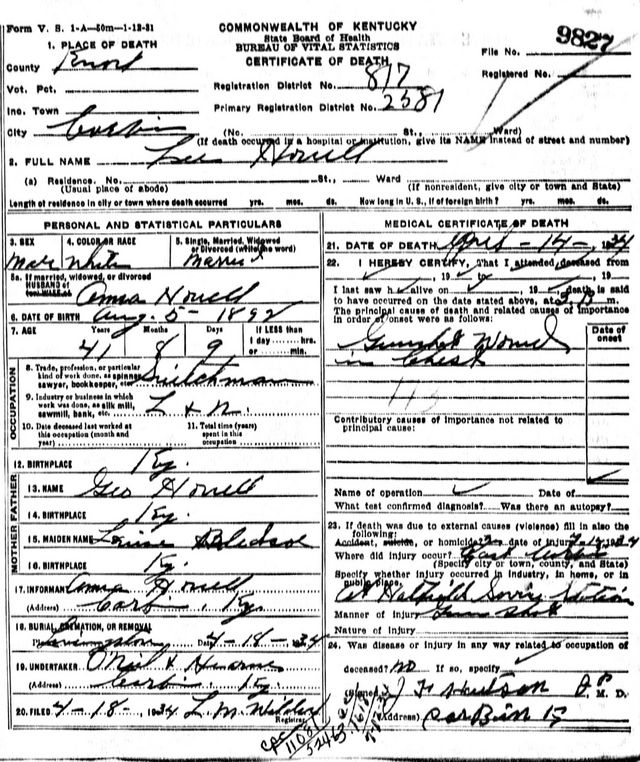 Form V. S. 1-A—50m—1-12-31
COMMONWEALTH OF KENTUCKY
State Board of Health
BUREAU OF VITAL STATISTICS
CERTIFICATE OF DEATH
File No. 9827
Registered No.
1. PLACE OF DEATH
County Knox
Vot. Pct.
Inc. Town
City Corbin
Registration District No. 817
Primary Registration District No. 2381
(No. St., Ward)
(If death occurred in a hospital or institution, give its NAME instead of street and number)
2. FULL NAME Lee Howell
(a) Residence. No. St., Ward
(Usual place of abode) (If nonresident, give city or town and State)
Length of residence in city or town where death occurred yrs. mos. ds. How long in U. S., if of foreign birth? yrs. mos. ds.
PERSONAL AND STATISTICAL PARTICULARS
3. SEX 4. COLOR OR RACE 5. Single, Married, Widowed
or Divorced (write the word)
Male White Married
5a. If married, widowed, or divorced
HUSBAND of
(or) WIFE of Anna Howell
6. DATE OF BIRTH Aug. 5 - 1892
7. AGE Years Months Days If LESS than
1 day hrs.
or min.
41 8 9
OCCUPATION
8. Trade, profession, or particular
kind of work done, as spinner,
sawyer, bookkeeper, etc. Switchman
9. Industry or business in which
work was done, as silk mill,
sawmill, bank, etc. L & N.
10. Date deceased last worked at
this occupation (month and
year)
11. Total time (years)
spent in this
occupation
12. BIRTHPLACE Ky.
MOTHER FATHER
13. NAME Geo Howell
14. BIRTHPLACE Ky.
15. MAIDEN NAME Bledsoe
16. BIRTHPLACE Ky.
17. INFORMANT Anna Howell
(Address) Corbin, Ky.
18. BURIAL, CREMATION, OR REMOVAL
Place Livingston Date 4-18-1934
19. UNDERTAKER O'Neil & Hearne
(Address) Corbin, Ky.
20. FILED 4-18-, 1934 L. M. Wilder
Registrar.
MEDICAL CERTIFICATE OF DEATH
21. DATE OF DEATH Apr. - 14 -, 1934
22. I HEREBY CERTIFY, That I attended deceased from
, 19 to , 19
I last saw h alive on , 19 , death is said
to have occurred on the date stated above, at m.
The principal cause of death and related causes of importance
in order of onset were as follows:
Date of
onset
Gunshot Wound
in Chest
Contributory causes of importance not related to
principal cause:
Name of operation Date of
What test confirmed diagnosis? Was there an autopsy?
23. If death was due to external causes (violence) fill in also the
following:
Accident, suicide, or homicide? date of injury 1934
Where did injury occur? East Corbin
(Specify city or town, county, and State)
Specify whether injury occurred in industry, in home, or in
public place,
At Hatfield Service Station
Manner of injury Gun Shot
Nature of injury
24. Was disease or injury in any way related to occupation of
deceased? No If so, specify
(Signed) M. D.
(Address) Corbin Ky